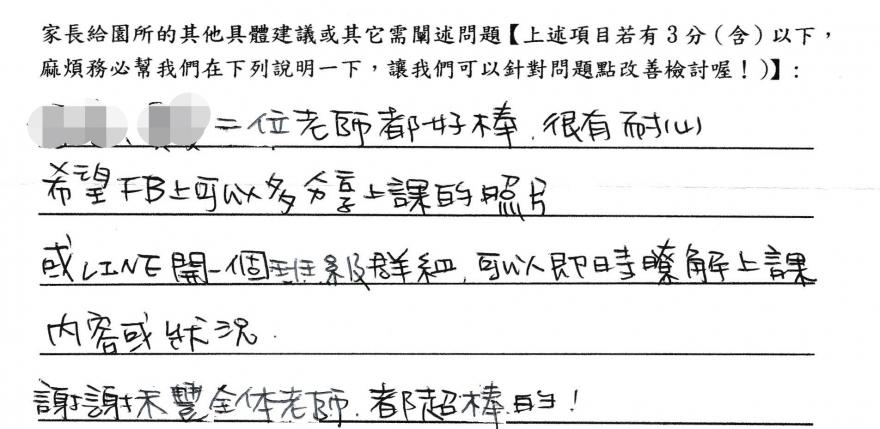 家長給園所的其他具體建議或其它需闡述問題【上述項目若有3分(含)以下，
麻煩務必幫我們在下列說明一下，讓我們可以針對問題點改善檢討喔！)】：
二位老師都好棒.很有耐心
希望FB上可以多分享上課的照片
或LINE開一個班級群組,可以即時瞭解上課
內容或狀況.
謝謝禾豐全体老師.都超棒的!